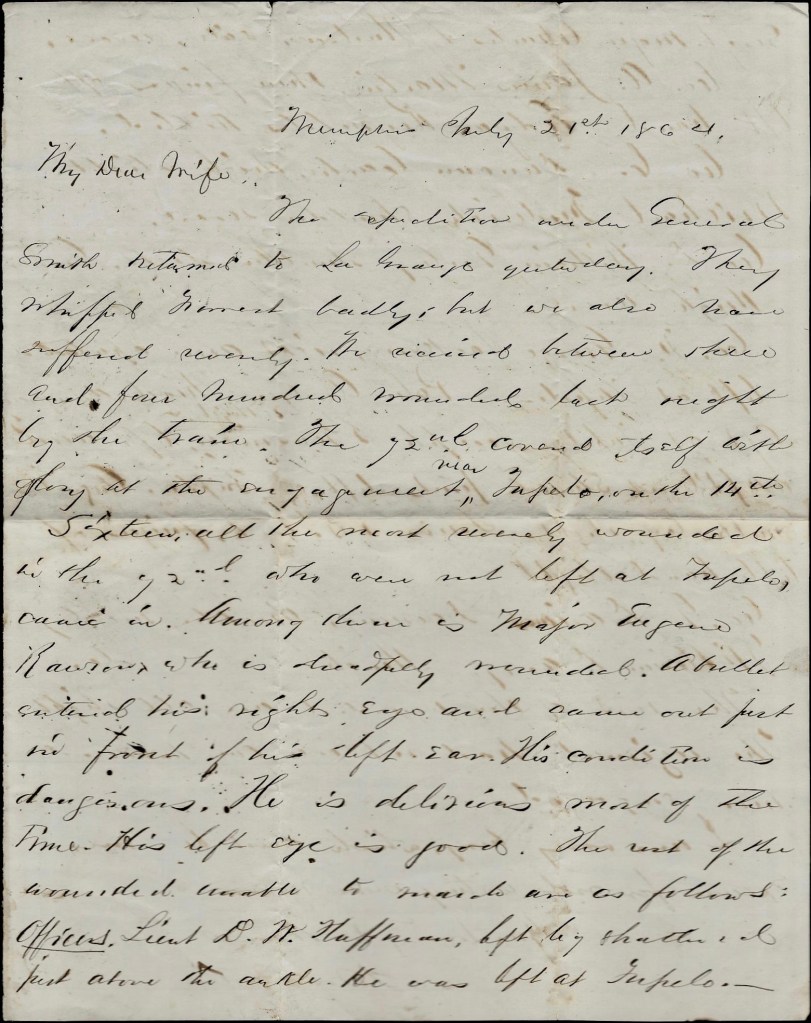 Memphis July 21st 1864.
My Dear Wife,
The expedition under General
Smith returned to La Grange yesterday. They
whipped Forrest badly, but we also have
suffered severely. We received between three
and four hundred wounded last night
by the train. The 72nd covered itself with
glory at the engagement near Tupelo, on the 14th
Sixteen, all the most severely wounded
in the 72nd who were not left at Tupelo,
came in. Among them is Major Eugene
Rawson, who is dreadfully wounded. A bullet
entered his right eye and came out just
in front of his left ear. His condition is
dangerous. He is delirious most of the
time. His left eye is good. The rest of the
wounded unable to march are as follows:
Officers. Lieut D. W. Huffman, left leg shattered
just above the ankle. He was left at Tupelo.—